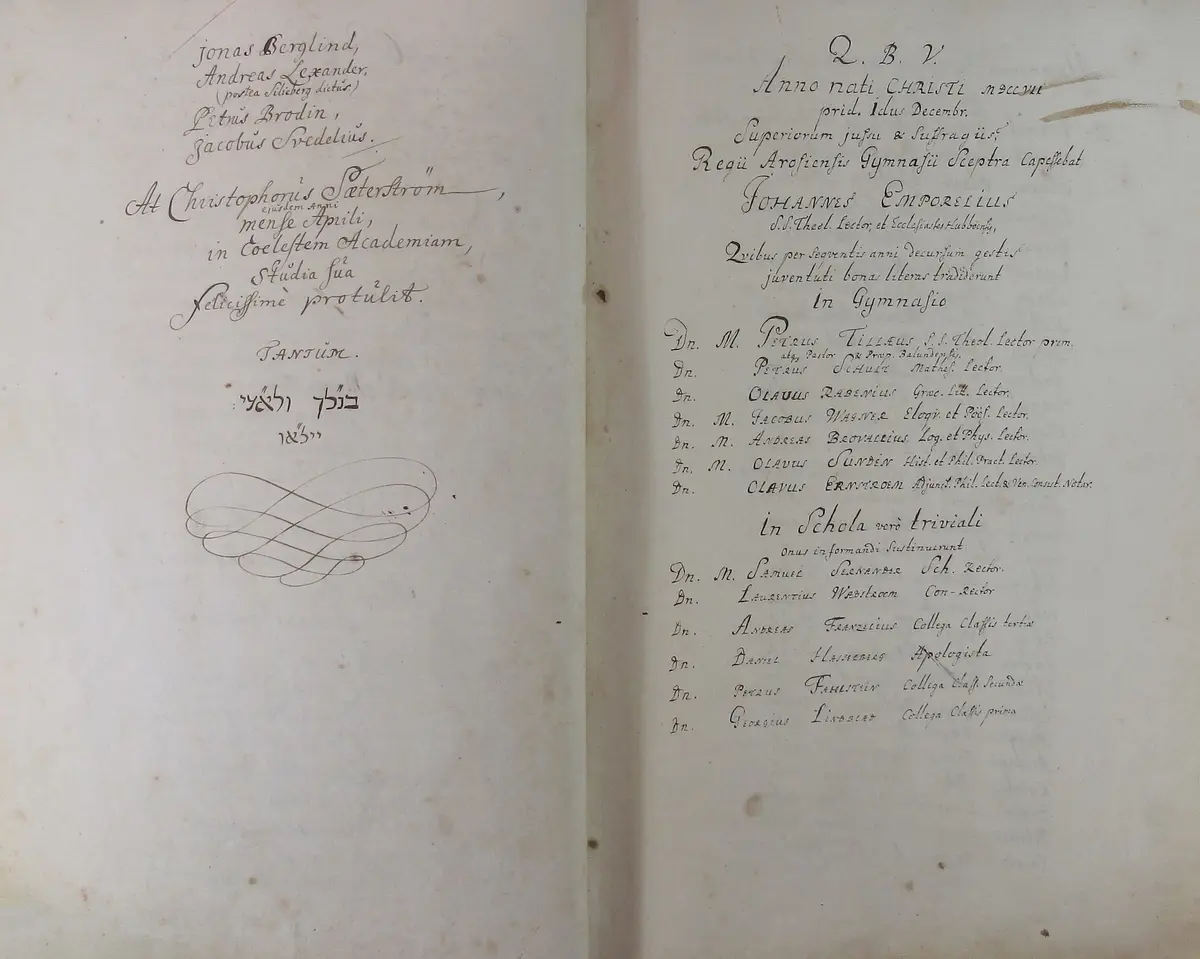 Jonas Berglind,
Andreas Lexander,
(postea Silieberg dictus.)
Petrus Brodin,
Jacobus Svedelius.
At Christophorus Sæterström,
ejusdem Anni
mense Aprili,
in Coelestem Academiam,
Studia sua
felicissimè protulit.
TANTUM.
בנ״לך ולא״עי:
יילא״ו
Q. B. V.
Anno nati CHRISTI MDCCVII
prid. Idus Decembr.
Superiorum jussu & Suffragiis,
Regii Arosiensis Gymnasii Sceptra Capessebat
JOHANNES EMPORELIUS
S.S. Theol. Lector, et Ecclesiastes Hubboensis,
Qvibus per seqventis anni decursum gestis
juventuti bonas literas tradiderunt
In Gymnasio
Dn. M. PETRUS TILLÆUS S.S. Theol. Lector prim.
atq; Pastor & Præp. Balundensis.
Dn. PETRUS SCHULT Mathes. Lector.
Dn. OLAVUS RABENIUS Græc. Lit. Lector.
Dn. M. JACOBUS WABNER Eloqv. et Poës. Lector.
Dn. M. ANDREAS BROVALLIUS Log. et Phys. Lector.
Dn. M. OLAVUS SUNDÉN Hist. et Phil. Pract. Lector.
Dn. OLAVUS ERNSTROEM Adjunct. Phil. Lect. & Ven. Consist. Notar.
In Schola verò triviali
onus informandi Sustinuerunt
Dn. M. SAMUEL SERNANDER Sch. Rector.
Dn. LAURENTIUS WABSTROEM Con-Rector
Dn. ANDREAS FRANZELIUS Collega Classis tertiæ
Dn. DANIEL HASSELBERG Apologista
Dn. PETRUS Collega Class. Secundæ
Dn. GEORGIUS Collega Classis prima